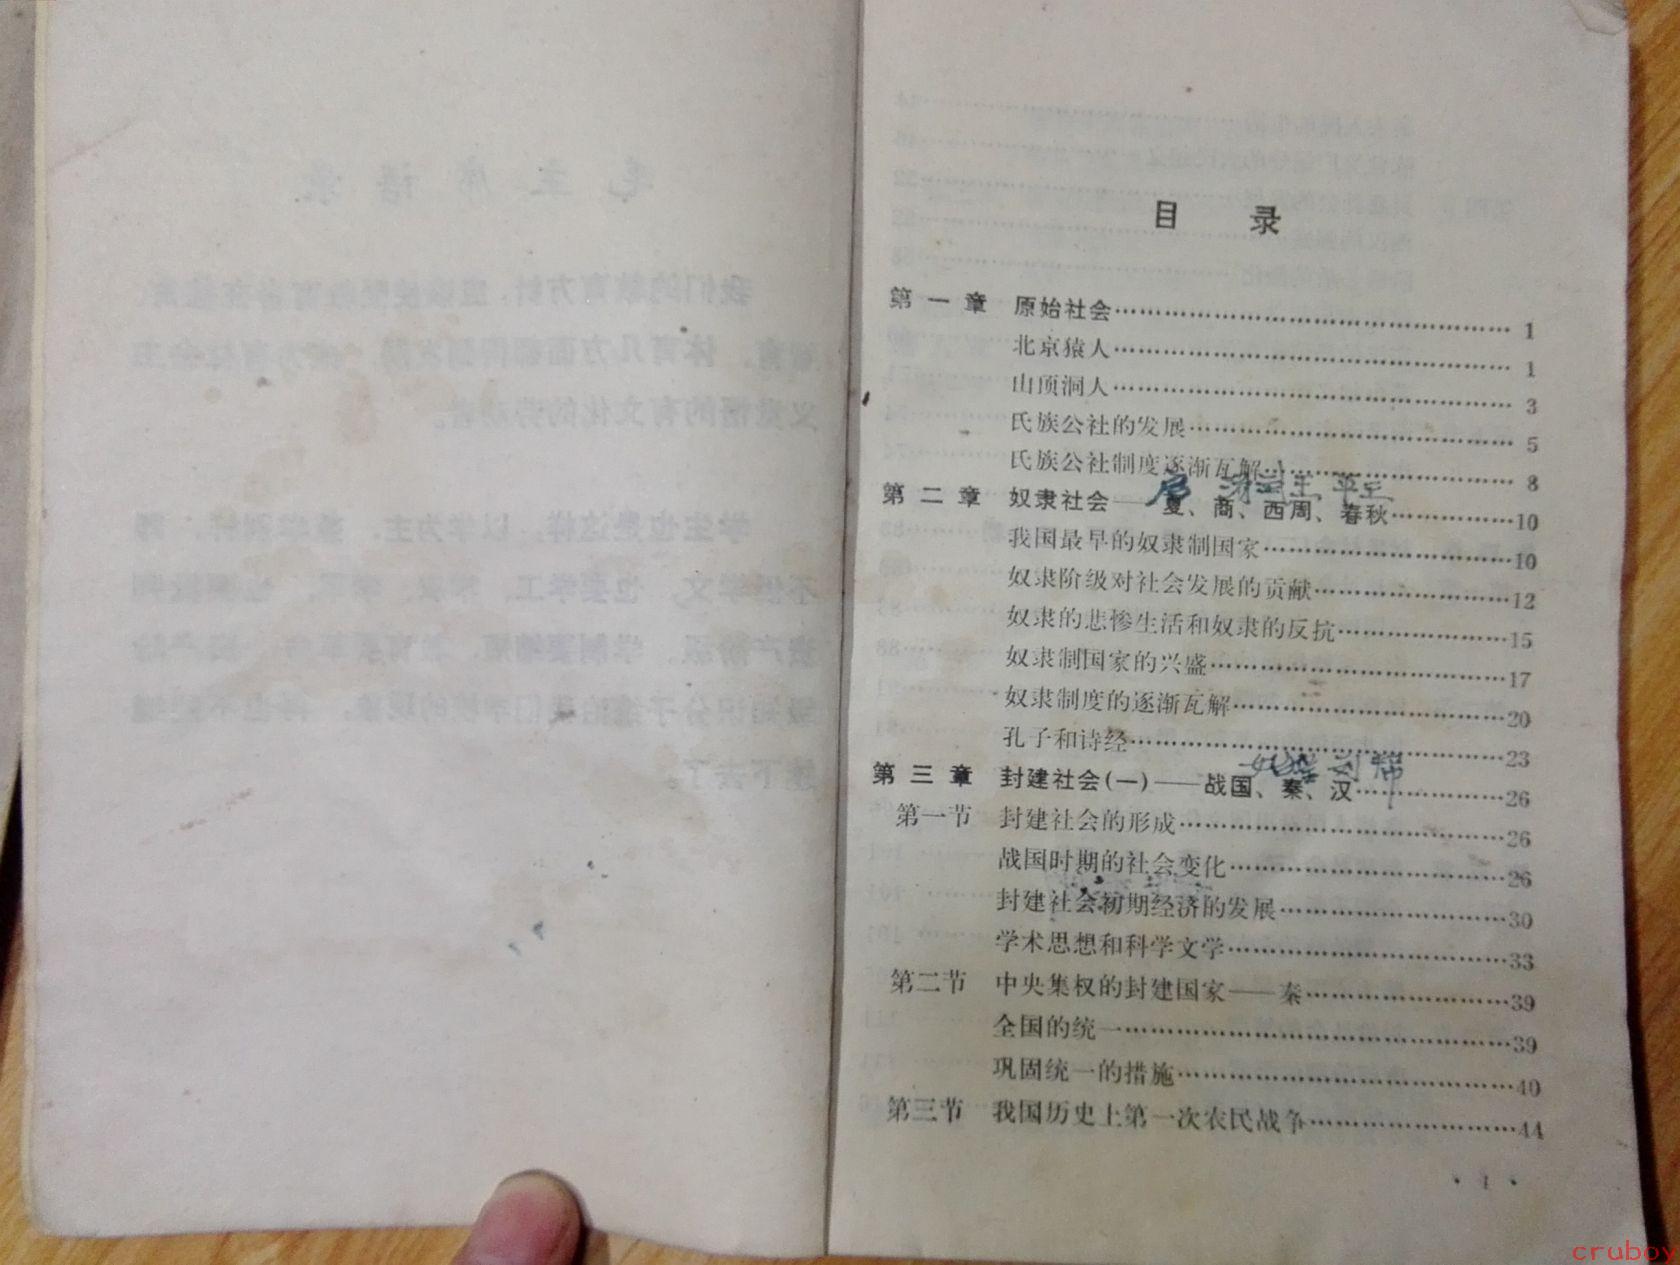 目 录
第一章 原始社会…………1
北京猿人…………1
山顶洞人…………3
氏族公社的发展…………5
氏族公社制度逐渐瓦解…………8
启 汤 武王 平王
第二章 奴隶社会——夏、商、西周、春秋…………10
我国最早的奴隶制国家…………10
奴隶阶级对社会发展的贡献…………12
奴隶的悲惨生活和奴隶的反抗…………15
奴隶制国家的兴盛…………17
奴隶制度的逐渐瓦解…………20
孔子和诗经…………23
刘邦
第三章 封建社会(一)——战国、秦、汉…………26
第一节 封建社会的形成…………26
战国时期的社会变化…………26
封建社会初期经济的发展…………30
学术思想和科学文学…………33
第二节 中央集权的封建国家——秦…………39
全国的统一…………39
巩固统一的措施…………40
第三节 我国历史上第一次农民战争…………44
· 1 ·
cruboy